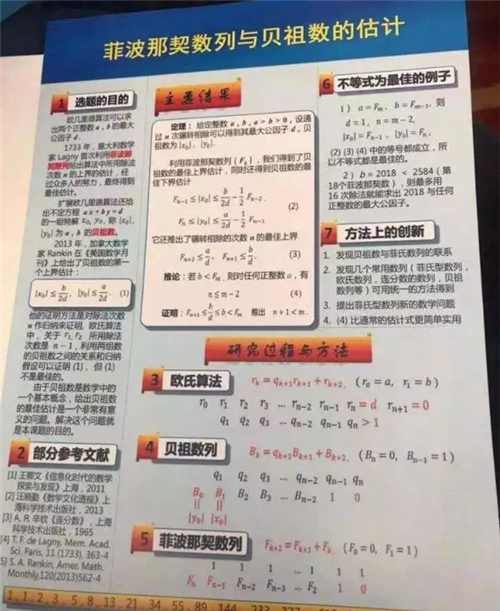 菲波那契数列与贝祖数的估计
1 选题的目的
欧几里德算法可以求
出两个正整数 a, b 的最大
公因子 d 。
1733 年，意大利数学
家 Lagny 首次利用菲波那
契数列给出算法中所用除法
次数 n 的上界的估计，经
过众多人的努力，最终得到
最佳估计。
扩展欧几里德算法还给
出不定方程 ax + by = d
的一组特解 x₀, y₀, 称 |x₀|,
|y₀| 为 a, b 的贝祖数。
2013 年，加拿大数学
家 Rankin 在《美国数学月
刊》上给出了贝祖数的第一
个上界估计：
|x₀| ≤ b/2d, |y₀| ≤ a/2d (1)
他的证明方法是对除法次数
n 作归纳来证明, 欧氏算法
中，关于 r₁, r₂ 所用除法
次数是 n − 1，利用两组数
的贝祖数之间的关系和归纳
假设可以证明 (1)，但 (1)
不是最佳的。
由于贝祖数是数学中的
一个基本概念，给出贝祖数
的最佳估计是一个非常有意
义的问题。解决这个问题就
是本课题的目的。
2 部分参考文献
[1] 王卿文《信息化时代的数学
探索与发现》上海，2011
[2] 汪晓勤《数学文化透视》上
海科学技术出版社，2013
[3] А. Я. 辛钦《连分数》，上海
科学技术出版社，1965
[4] T. F. de Lagny, Mem. Acad.
Sci. Paris, 11 (1733), 363-4
[5] S. A. Rankin, Amer. Math.
Monthly,120(2013)562-4
主要结果
定理：给定整数 a, b, a > b > 0, 设通
过 n 次辗转相除可以得到其最大公因子 d，贝
祖数为 |x₀|, |y₀|.
利用菲波那契数列 { Fₙ }，我们得到了贝
祖数的最佳上界估计，同时还得到贝祖数的最
佳下界估计
Fₙ₋₁ ≤ |x₀| ≤ b/2d − 1/2 Fₙ₋₂,
(2)
Fₙ ≤ |y₀| ≤ a/2d − 1/2 Fₙ₋₁.
它还推出了辗转相除的次数 n 的最佳上界
Fₙ₊₂ ≤ a/d, Fₙ₊₁ ≤ b/d. (3)
推论：若 b < Fₘ, 则对任何正整数 a，有
n ≤ m − 2 (4)
证明：Fₙ₊₁ ≤ b/d ≤ b < Fₘ 推出 n + 1 < m.
研究过程与方法
3 欧氏算法 rₖ = qₖ₊₁rₖ₊₁ + rₖ₊₂, (r₀ = a, r₁ = b)
r₀ r₁ r₂ r₃ ... rₙ₋₂ rₙ₋₁ rₙ = d rₙ₊₁ = 0
q₁ q₂ q₃ ... qₙ₋₂ qₙ₋₁ qₙ > 1
4 贝祖数列 Bₖ = qₖ₊₁Bₖ₊₁ + Bₖ₊₂, (Bₙ = 0, Bₙ₋₁ = 1)
q₁ q₂ q₃ ... qₙ₋₂ qₙ₋₁ qₙ
B₀ B₁ B₂ B₃ ... Bₙ₋₂ 1 0
|| ||
|y₀| |x₀|
5 菲波那契数列 Fₖ₊₂ = Fₖ₊₁ + Fₖ, (F₀ = 0, F₁ = 1)
1 1 1 ... 1 1 1
Fₙ Fₙ₋₁ Fₙ₋₂ Fₙ₋₃ ... F₂ 1 0
6 不等式为最佳的例子
1） a = Fₘ, b = Fₘ₋₁, 则
d = 1, n = m − 2,
|x₀| = Fₙ₋₁, |y₀| = Fₙ.
(2) (3) (4) 中的等号都成立，所
以不等式都是最佳的。
2）b = 2018 < 2584 ( 第
18个菲波那契数 )，则最多用
16 次除法就能求出 2018 与任何
正整数的最大公因子。
7 方法上的创新
1. 发现贝祖数与菲氏数列的联系
2. 发现几个常用数列（菲氏型数列，
欧氏数列，连分数的数列，贝祖
数列等）可用统一的方法得到
3. 提出菲氏型数列新的数学问题
4. (4) 比通常的估计式更简单实用
1, 1, 2, 3, 5, 8, 13, 21, 34, 55, 89, 144, 233, 377